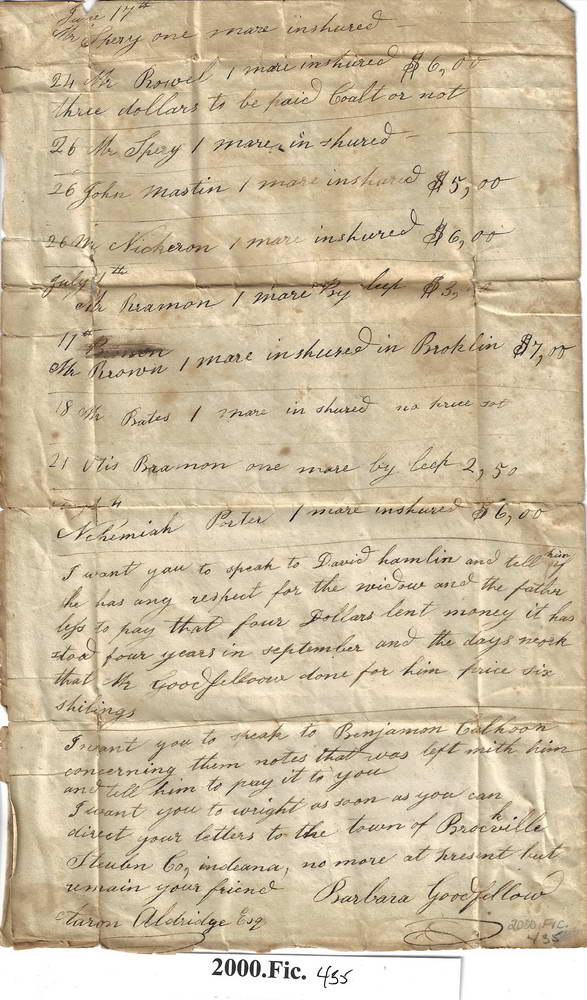 June 17th
Mr Spery one mare inshured
24 Mr Rowel 1 mare inshured $6,00
three dollars to be paid Coalt or not
26 Mr Spery 1 mare in shured
26 John Mastin 1 mare inshured $5,00
26 Mr Nicheron 1 mare inshured $6,00
July 1th
Mr Bramon 1 mare By leep $3,
17th
Mr Brown 1 mare inshured in Broklin $7,00
18 Mr Bates 1 mare in shured no price sot
21 Otis Bramon one mare by leep 2,50
4
Nehemiah Porter 1 mare inshured $6,00
I want you to speak to David hamlin and tell him if
he has any respect for the widow and the father
less to pay that four Dollars lent money it has
stood four years in september and the days work
that Mr Goodfelloow done for him price six
shilings
I want you to speak to Benjamon Calhoon
concerning them notes that was left with him
and tell him to pay it to you
I want you to wright as soon as you can
direct your letters to the town of Brockville
Steubn Co, indeana, no more at present but
remain your friend Barbara Goodfellow
Aaron Aldridge Esq
2000.FIC.
435
2000.Fic. 435